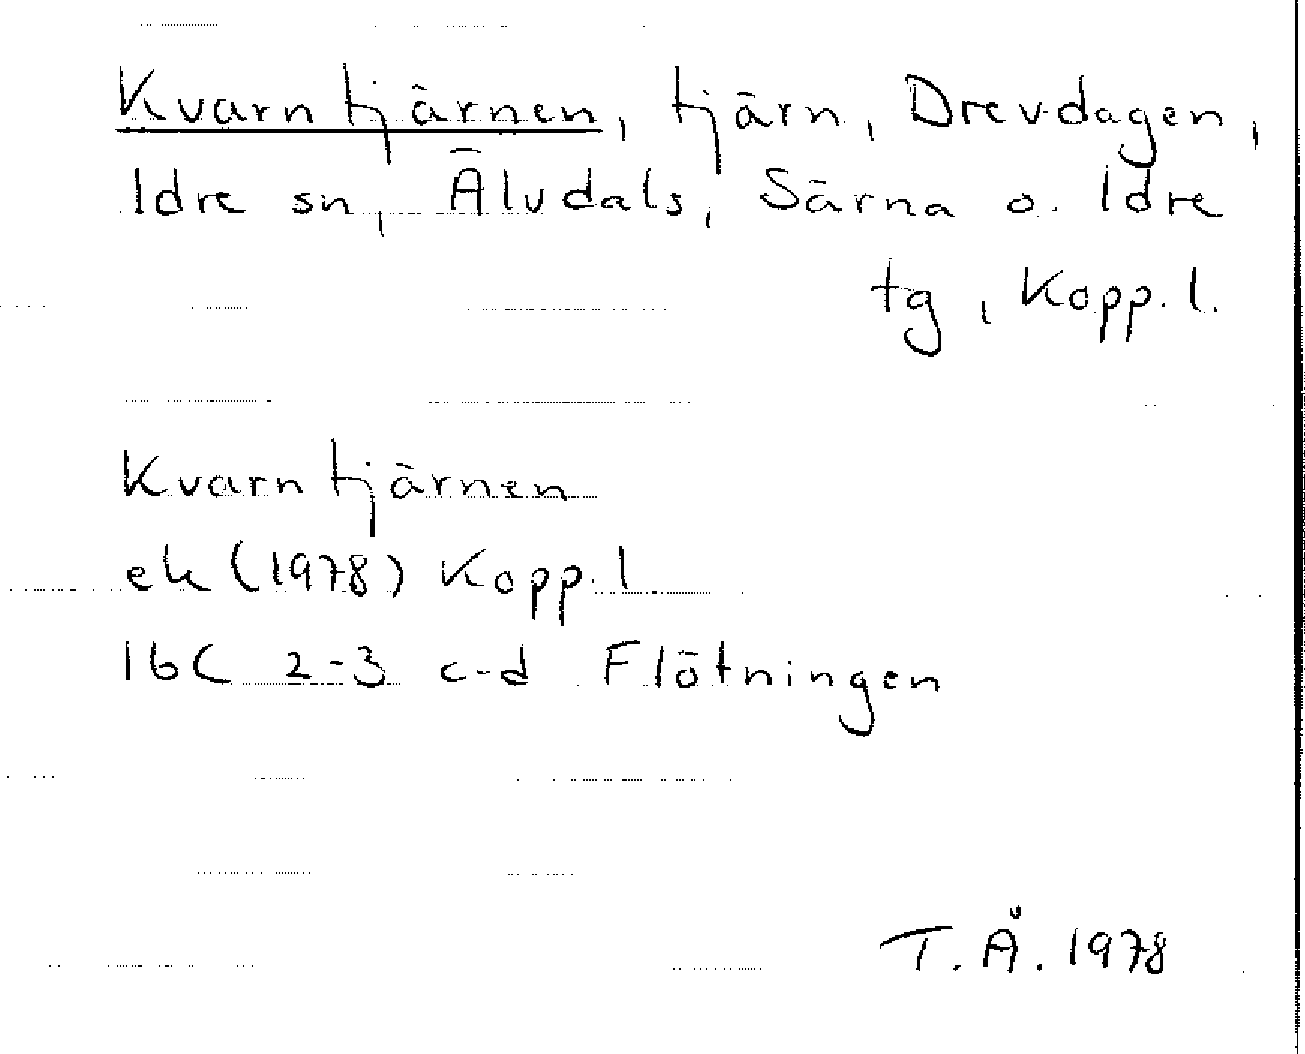 Kvarntjärnen, tjärn, Drevdagen,
Idre sn, Älvdals, Särna o. Idre
tg, Kopp. l.
Kvarntjärnen
ek (1978) Kopp. l
16C 2-3 c-d Flötningen
T. Å. 1978